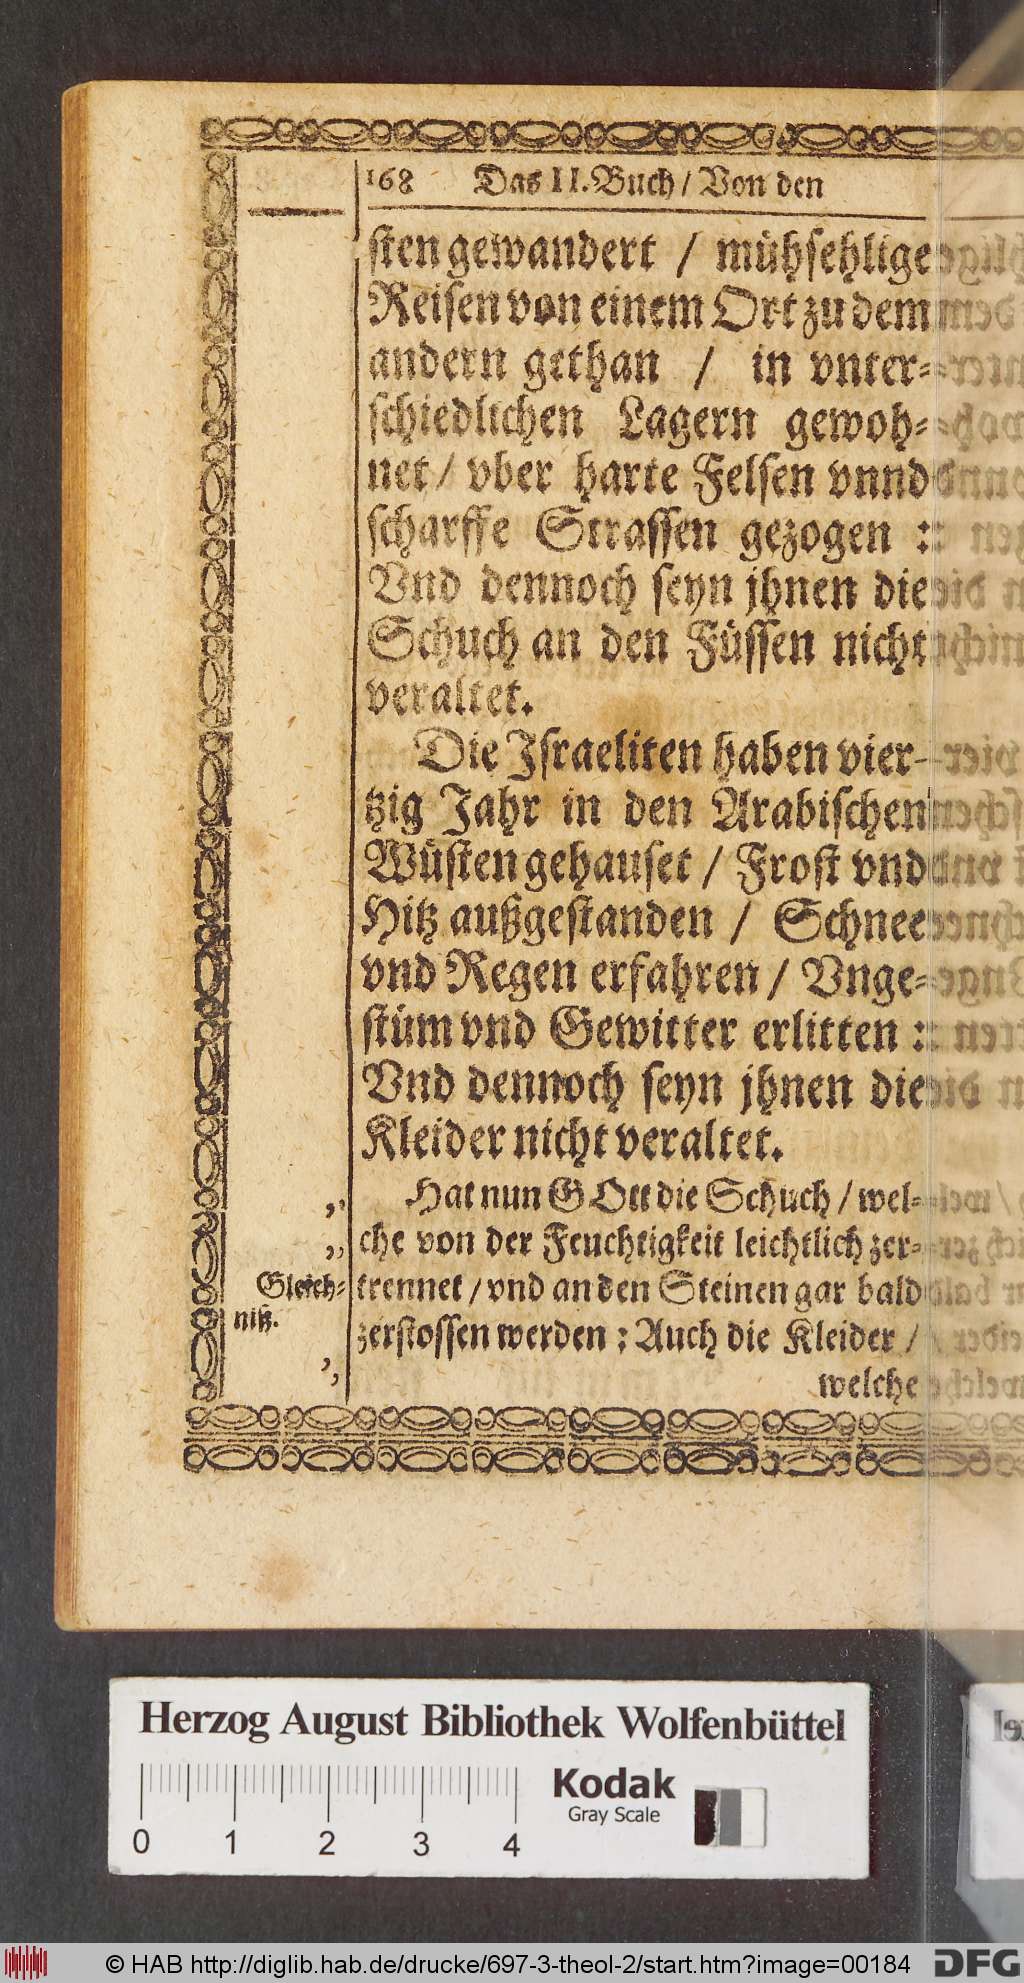 168 Das II. Buch / Von den
sten gewandert / mühsehlige
Reisen von einem Ort zu dem
andern gethan / in vnter-
schiedlichen Lagern gewoh-
net / vber harte Felsen vnnd
scharffe Strassen gezogen :
Vnd dennoch seyn jhnen die
Schuch an den Füssen nicht
veraltet.
Die Israeliten haben vier-
tzig Jahr in den Arabischen
Wüsten gehauset / Frost vnd
Hitz außgestanden / Schnee
vnd Regen erfahren / Vnge-
stüm vnd Gewitter erlitten :
Vnd dennoch seyn jhnen die
Kleider nicht veraltet.
Hat nun GOtt die Schuch / wel-
che von der Feuchtigkeit leichtlich zer-
trennet / vnd an den Steinen gar bald
zerstossen werden : Auch die Kleider /
welche
Gleich-
niß.
Herzog August Bibliothek Wolfenbüttel
Kodak
Gray Scale
0 1 2 3 4
© HAB http://diglib.hab.de/drucke/697-3-theol-2/start.htm?image=00184
DFG